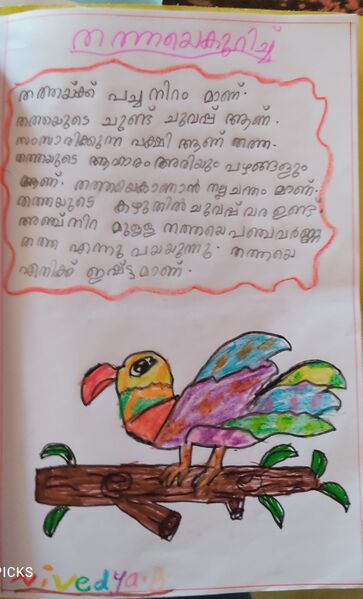 തത്തയെകുറിച്ച്
തത്തയ്ക്ക് പച്ച നിറം മാണ്.
തത്തയുടെ ചുണ്ട് ചുവപ്പ് ആണ്.
സംസാരിക്കുന്ന പക്ഷി ആണ് തത്ത.
തത്തയുടെ ആഹാരം അരിയും പഴങ്ങളും
ആണ്. തത്തയെകാണാൻ നല്ലചന്തം മാണ്.
തത്തയുടെ കഴുത്തിൽ ചുവപ്പ് വര ഉണ്ട്
അഞ്ച് നിറ മുള്ള തത്തയെ പഞ്ചവർണ്ണ
തത്ത എന്നു പറയുന്നു. തത്തയെ
എനിക്ക് ഇഷ്ട്ട മാണ്.
PICKS
vivedya.B